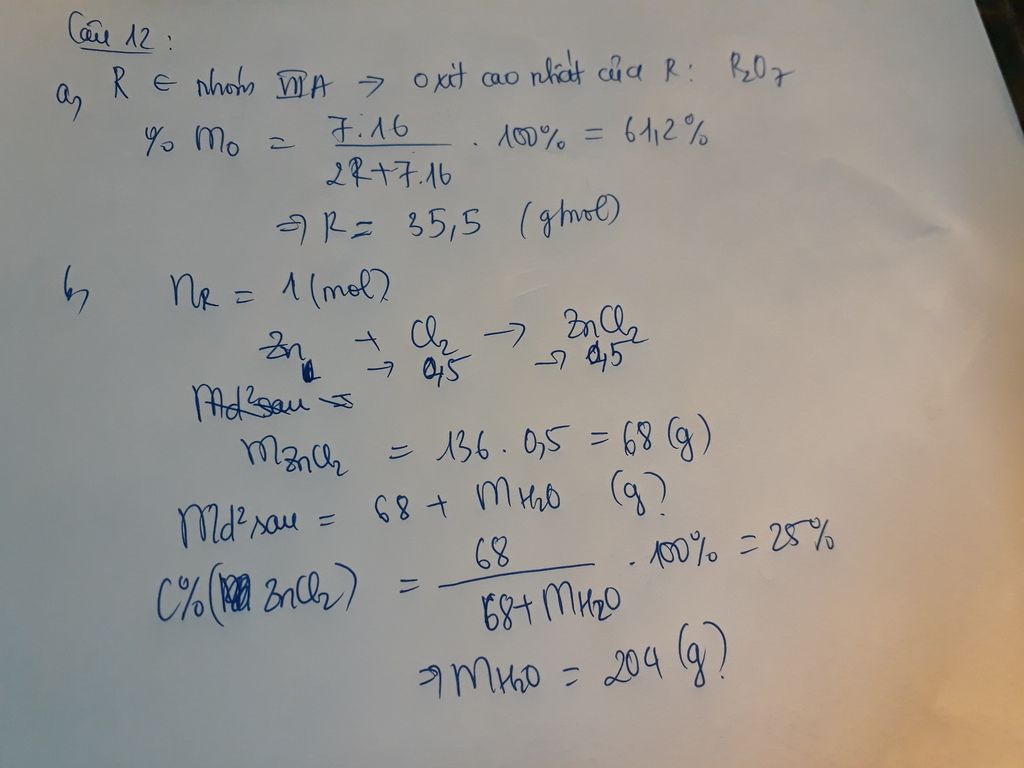 Câu 12:
a, R ∈ nhóm VIIA → oxit cao nhất của R: R2O7
% mO = 7.16 / 2R+7.16 . 100% = 61,2%
⇒ R = 35,5 (g/mol)
b, nR = 1 (mol)
Zn + Cl2 → ZnCl2
→ 0,5 → 0,5
md2sau =
mZnCl2 = 136 . 0,5 = 68 (g)
md2sau = 68 + mH2O (g)
C% (ZnCl2) = 68 / 68+mH2O . 100% = 25%
⇒ mH2O = 204 (g)